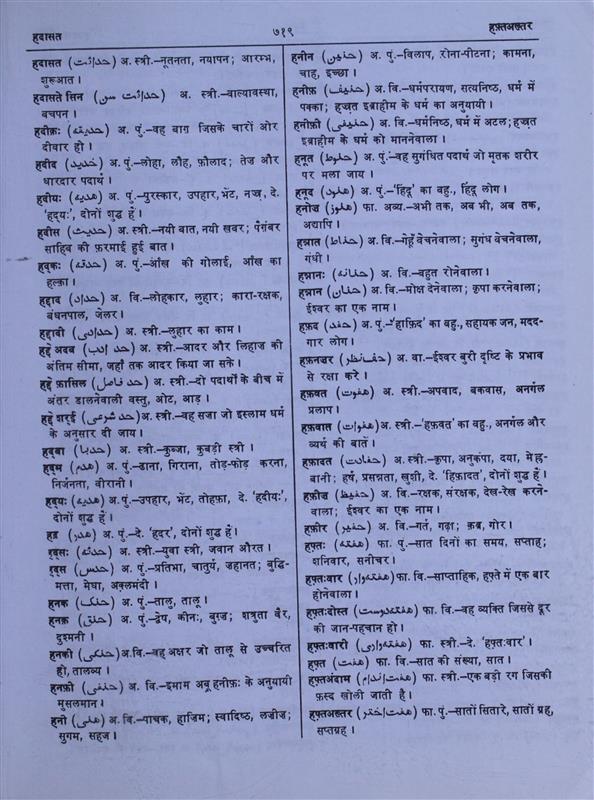 हदासत
७१९
हफ़्तअख़्तर
हदासत (حداثت) अ. स्त्री.–नूतनता, नयापन; आरम्भ,
शुरूआत।
हदासते सिन (حداثت سن) अ. स्त्री.–वाल्यावस्था,
बचपन।
हदीक़: (حديقه) अ. पुं.–वह बाग़ जिसके चारों ओर
दीवार हो।
हदीद (حديد) अ. पुं.–लोहा, लौह, फ़ौलाद; तेज और
धारदार पदार्थ।
हदीय: (هديه) अ. पुं.–पुरस्कार, उपहार, भेंट, नज्र, दे.
'हद्य:', दोनों शुद्ध हैं।
हदीस (حديث) अ. स्त्री.–नयी बात, नयी ख़बर; पैग़ंबर
साहिब की फ़रमाई हुई बात।
हद्क़: (حدقه) अ. पुं.–आँख की गोलाई, आँख का
हल्क़ा।
हद्दाद (حداد) अ. वि.–लोहकार, लुहार; कारा-रक्षक,
बंधनपाल, जेलर।
हद्दादी (حدادی) अ. स्त्री.–लुहार का काम।
हद्दे अदब (حد ادب) अ. स्त्री.–आदर और लिहाज़ की
अंतिम सीमा, जहाँ तक आदर किया जा सके।
हद्दे फ़ासिल (حد فاصل) अ. स्त्री.–दो पदार्थों के बीच में
अंतर डालनेवाली वस्तु, ओट, आड़।
हद्दे शर्ई (حد شرعی) अ. स्त्री.–वह सजा जो इस्लाम धर्म
के अनुसार दी जाय।
हद्बा (حدبا) अ. स्त्री.–कुब्जा, कुबड़ी स्त्री।
हद्म (هدم) अ. पुं.–ढाना, गिराना, तोड़-फोड़ करना,
निर्जनता, वीरानी।
हद्य: (هديه) अ. पुं.–उपहार, भेंट, तोहफ़ा, दे. 'हदीय:',
दोनों शुद्ध हैं।
हद्र (هدر) अ. पुं.–दे. 'हदर', दोनों शुद्ध हैं।
हद्स: (حدثه) अ. स्त्री.–युवा स्त्री, जवान औरत।
हद्स (حدس) अ. पुं.–प्रतिभा, चातुर्य, जहानत; बुद्धि-
मत्ता, मेघा, अक़्लमंदी।
हनक (حنک) अ. पुं.–तालु, तालू।
हनक़ (حنق) अ. पुं.–द्वेष, कीन:, बुग़्ज़; शत्रुता बैर,
दुश्मनी।
हनकी (حنکی) अ. वि.–वह अक्षर जो तालू से उच्चरित
हो, तालव्य।
हनफ़ी (حنفی) अ. वि.–इमाम अबू हनीफ़: के अनुयायी
मुसलमान।
हनी (هنی) अ. वि.–पाचक, हाज़िम; स्वादिष्ठ, लज़ीज़;
सुगम, सहज।
हनीन (حنين) अ. पुं.–विलाप, रोना-पीटना; कामना,
चाह, इच्छा।
हनीफ़ (حنيف) अ. वि.–धर्मपरायण, सत्यनिष्ठ, धर्म में
पक्का; हज्रत इब्राहीम के धर्म का अनुयायी।
हनीफ़ी (حنيفی) अ. वि.–धर्मनिष्ठ, धर्म में अटल; हज्रत
इब्राहीम के धर्म को माननेवाला।
हनूत (حنوط) अ. पुं.–वह सुगंधित पदार्थ जो मृतक शरीर
पर मला जाय।
हनूद (هنود) अ. पुं.–'हिंदू' का बहु., हिंदू लोग।
हनोज़ (هنوز) फा. अव्य.–अभी तक, अब भी, अब तक,
अद्यापि।
हन्नात (حناط) अ. वि.–गेहूँ बेचनेवाला; सुगंध बेचनेवाला,
गंधी।
हन्नान: (حنانه) अ. वि.–बहुत रोनेवाला।
हन्नान (حنان) अ. वि.–मोक्ष देनेवाला; कृपा करनेवाला;
ईश्वर का एक नाम।
हफ़द (حفد) अ. पुं.–'हाफ़िद' का बहु., सहायक जन, मदद-
गार लोग।
हफ़नज़र (حف نظر) अ. वा.–ईश्वर बुरी दृष्टि के प्रभाव
से रक्षा करे।
हफ़वत (هفوت) अ. स्त्री.–अपवाद, बकवास, अनर्गल
प्रलाप।
हफ़वात (هفوات) अ. स्त्री.–'हफ़वत' का बहु., अनर्गल और
व्यर्थ की बातें।
हफ़ादत (حفادت) अ. स्त्री.–कृपा, अनुकंपा, दया, मेह्र-
बानी; हर्ष, प्रसन्नता, खुशी, दे. 'हिफ़ादत', दोनों शुद्ध हैं।
हफ़ीज़ (حفيظ) अ. वि.–रक्षक, संरक्षक, देख-रेख करने-
वाला; ईश्वर का एक नाम।
हफ़ीर (حفير) अ. वि.–गर्त, गढ़ा; क़ब्र, गोर।
हफ़्त: (هفته) फा. पुं.–सात दिनों का समय, सप्ताह;
शनिवार, सनीचर।
हफ़्त:वार (هفته وار) फा. वि.–साप्ताहिक, हफ़्ते में एक बार
होनेवाला।
हफ़्त:दोस्त (هفته دوست) फा. वि.–वह व्यक्ति जिससे दूर
की जान-पहचान हो।
हफ़्त:वारी (هفته واری) फा. स्त्री.–दे. 'हफ़्त:वार'।
हफ़्त (هفت) फा. वि.–सात की संख्या, सात।
हफ़्तअंदाम (هفت اندام) फा. स्त्री.–एक बड़ी रग जिसकी
फ़स्द खोली जाती है।
हफ़्तअख़्तर (هفت اختر) फा. पुं.–सातों सितारे, सातों ग्रह,
सप्तग्रह।